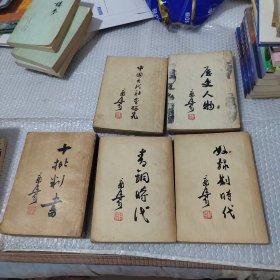 中国古代社会研究
郭沫若
历史人物
郭沫若
十批判书
郭沫若
青铜时代
郭沫若
奴隶制时代
郭沫若